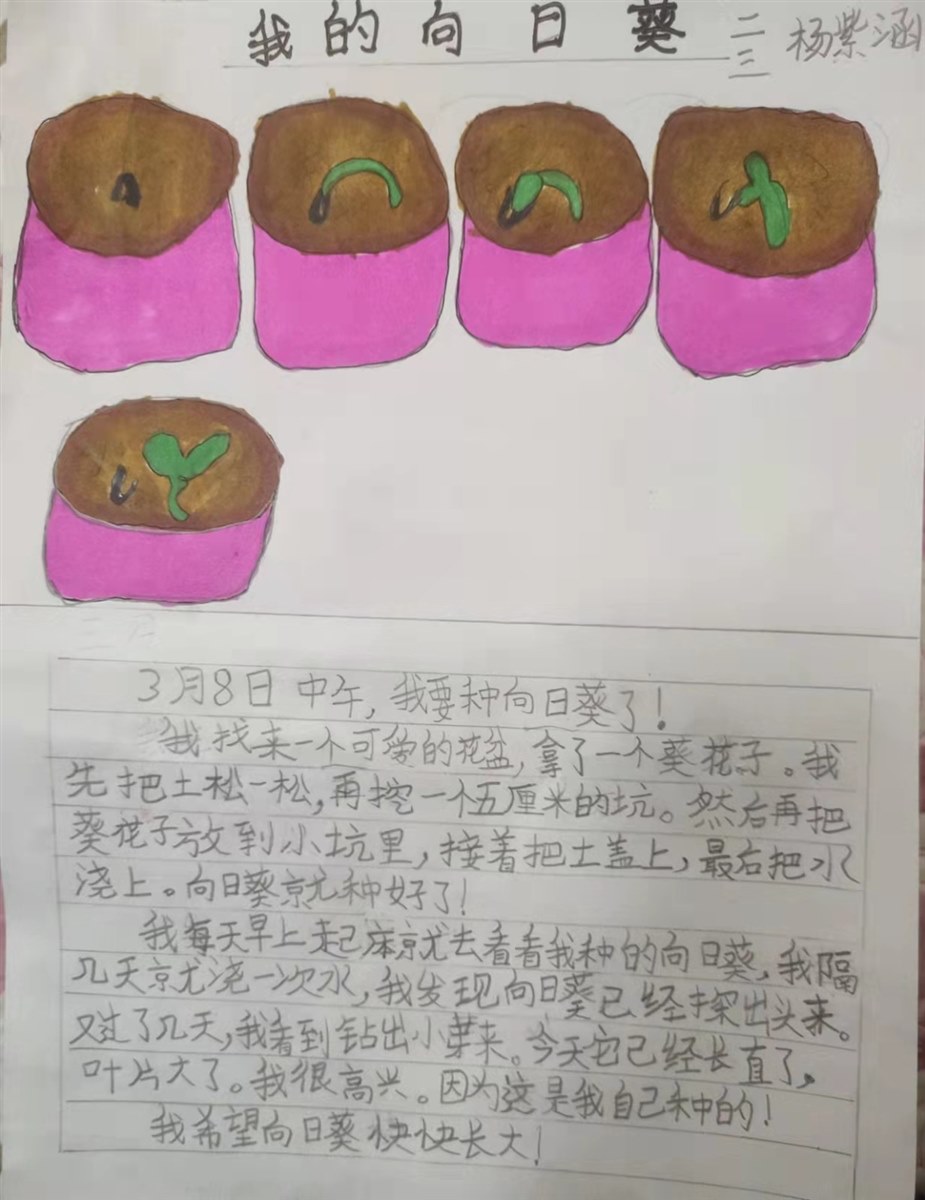 我的向日葵 二三 杨紫涵
3月8日中午,我要种向日葵了!
我找来一个可爱的花盆,拿了一个葵花子。我
先把土松一松,再挖一个五厘米的坑。然后再把
葵花子放到小坑里,接着把土盖上,最后把水
浇上。向日葵就种好了!
我每天早上起床就去看看我种的向日葵,我隔
几天就浇一次水,我发现向日葵已经探出头来。
又过了几天,我看到钻出小芽来。今天它已经长直了,
叶片大了。我很高兴。因为这是我自己种的!
我希望向日葵快快长大!